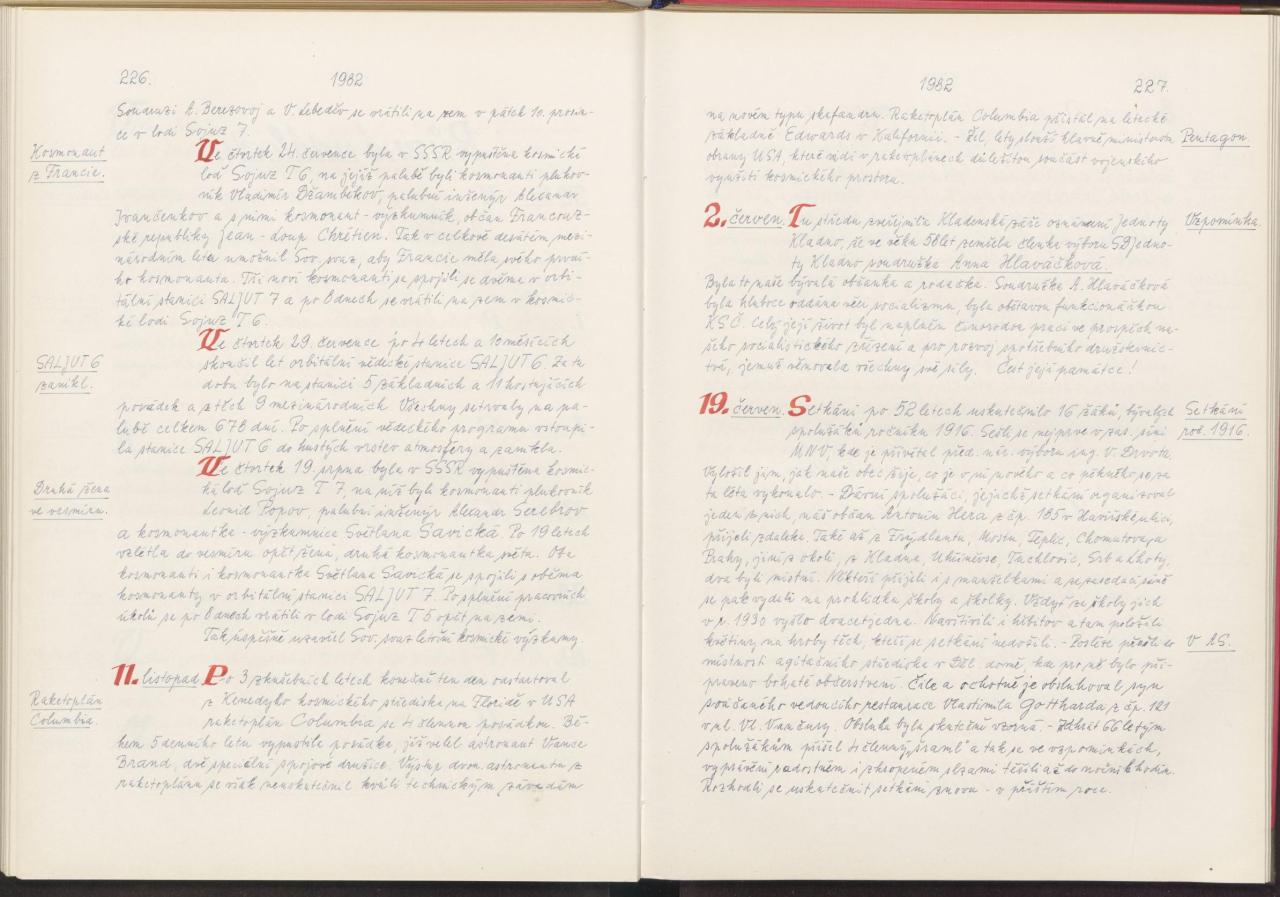 226.
1982
Soudruzi A. Berezovoj a V. Lebeděv se vrátili na zem v pátek 10. prosin-
ce v lodi Sojuz 7.
Kosmonaut
z Francie.
Ve čtvrtek 24. července byla v SSSR vypuštěna kosmická
loď Sojuz T6, na jejíž palubě byli kosmonanti plukov-
ník Vladimír Džambekov, palubní inženýr Alexandr
Ivančenkov a s nimi kosmonaut - výzkumník, občan Francouz-
ské republiky Jean - Loup Chrétien. Tak v celkově desátém mezi-
národním letu umožnil Sov. svaz, aby Francie měla svého první-
ho kosmonauta. Tři noví kosmonanti se spojili se dvěma v orbi-
tální stanici SALJUT 7 a po 8 dnech se vrátili na zem v kosmic-
ké lodi Sojuz T6.
SALJUT 6
zanikl.
Ve čtvrtek 29. července po 4 letech a 10 měsících
skončil let orbitální vědecké stanice SALJUT 6. Za tu
dobu bylo na stanici 5 základních a 11 hostujících
posádek a z těch 9 mezinárodních. Všechny setrvaly na pa-
lubě celkem 678 dní. Po splnění vědeckého programu vstoupi-
la stanice SALJUT 6 do hustých vrstev atmosféry a zanikla.
Druhá žena
ve vesmíru.
Ve čtvrtek 19. srpna byla v SSSR vypuštěna kosmic-
ká loď Sojuz T 7, na níž byli kosmonanti plukovník
Leonid Popov, palubní inženýr Alexandr Serebrov
a kosmonautka - výzkumnice Světlana Savická. Po 19 letech
vzlétla do vesmíru opět žena, druhá kosmonautka světa. Oba
kosmonanti i kosmonautka Světlana Savická se spojili s oběma
kosmonanty v orbitální stanici SALJUT 7. Po splnění pracovních
úkolů se po 8 dnech vrátili v lodi Sojuz T 5 opět na zemi.
Tak úspěšně uzavřel Sov. svaz letošní kosmické výzkumy.
Raketoplán
Columbia.
11. listopad. Po 3 zkušebních letech konečně ten den odstartoval
z Kenedyho kosmického střediska na Floridě v USA
raketoplán Columbia se 4 člennou posádkou. Bě-
hem 5 denního letu vypustila posádka, jíž velel astronaut Vance
Brand, dvě speciální spojové družice. Výstup dvou astronautů z
raketoplánu se však neuskutečnil kvůli technickým závadám
1982
227.
na novém typu skafandru. Raketoplán Columbia přistál na letecké
základně Edwards v Kalifornii. - Žel, lety slouží hlavně ministerstvu
Pentagon.
obrany USA, které vidí v raketoplánech důležitou součást vojenského
využití kosmického prostoru.
2. červen. Tu středu zveřejnila Kladenská záře oznámení Jednoty
Vzpomínka.
Kladno, že ve věku 58 let zemřela členka výboru SD Jedno-
ty Kladno soudružka Anna Hlaváčková.
Byla to naše bývalá občanka a rodačka. Soudružka A. Hlaváčková
byla hluboce oddána věci socialismu, byla obětavou funkcionářkou
KSČ. Celý její život byl naplněn činorodou prací ve prospěch na-
šeho socialistického zřízení a pro rozvoj spotřebního družstevnic-
tví, jemuž věnovala všechny své síly. Čest její památce!
19. červen. Setkání po 52 letech uskutečnilo 16 žáků, bývalých
Setkání
roč. 1916.
spolužáků ročníku 1916. Sešli se nejprve v zas. síni
MNV, kde je přivítal před. nár. výboru ing. V. Drvota.
Vyložil jim, jak naše obec žije, co je v ní nového a co pěkného se za
ta léta vykonalo. - Dávní spolužáci, jejichž setkání organizoval
jeden z nich, náš občan Antonín Hera z čp. 185 v Havířské ulici,
přijeli zdaleka. Také až z Frýdlantu, Mostu, Teplic, Chomutova a
Prahy, jiní z okolí, z Kladna, Uhříněvse, Tuchlovic, Srb a Lhoty,
dva byli místní. Někteří přijeli i s manželkami a ze zasedací síně
se pak vydali na prohlídku školy a školky. Vždyť ze školy jich
v r. 1930 vyšlo dvacetjedna. Navštívili i hřbitov a tam položili
květiny na hroby těch, kteří se setkání nedožili. - Posléze přešli do
V AS.
místnosti agitačního střediska v Děl. domě, kde pro ně bylo při-
praveno bohaté občerstvení. Čile a ochotně je obsluhoval syn
současného vedoucího restaurace Vlastimila Gottharda z čp. 121
v ul. Vl. Vančury. Obsluha byla skutečně vzorná. - Zahrát 66 letým
spolužákům přišel 4 členný „šraml" a tak se ve vzpomínkách,
vyprávění radostném i zkropeném slzami těšili až do nočních hodin.
Rozhodli se uskutečnit setkání znovu - v příštím roce.